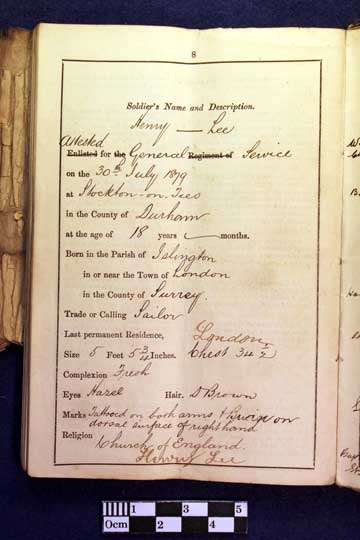 8
Soldier's Name and Description.
Henry — Lee
Attested
Enlisted for the General Regiment of Service
on the 30th July 1879
at Stockton-on-Tees
in the County of Durham
at the age of 18 years — months.
Born in the Parish of Islington
in or near the Town of London
in the County of Surrey.
Trade or Calling Sailor
Last permanent Residence, London
Size 5 Feet 5 3/4 Inches. Chest 34 1/2
Complexion Fresh
Eyes Hazel Hair. D Brown
Marks Tattooed on both arms & on
dorsal surface of right hand
Religion Church of England.
Henry Lee
0cm 1 2 3 4 5